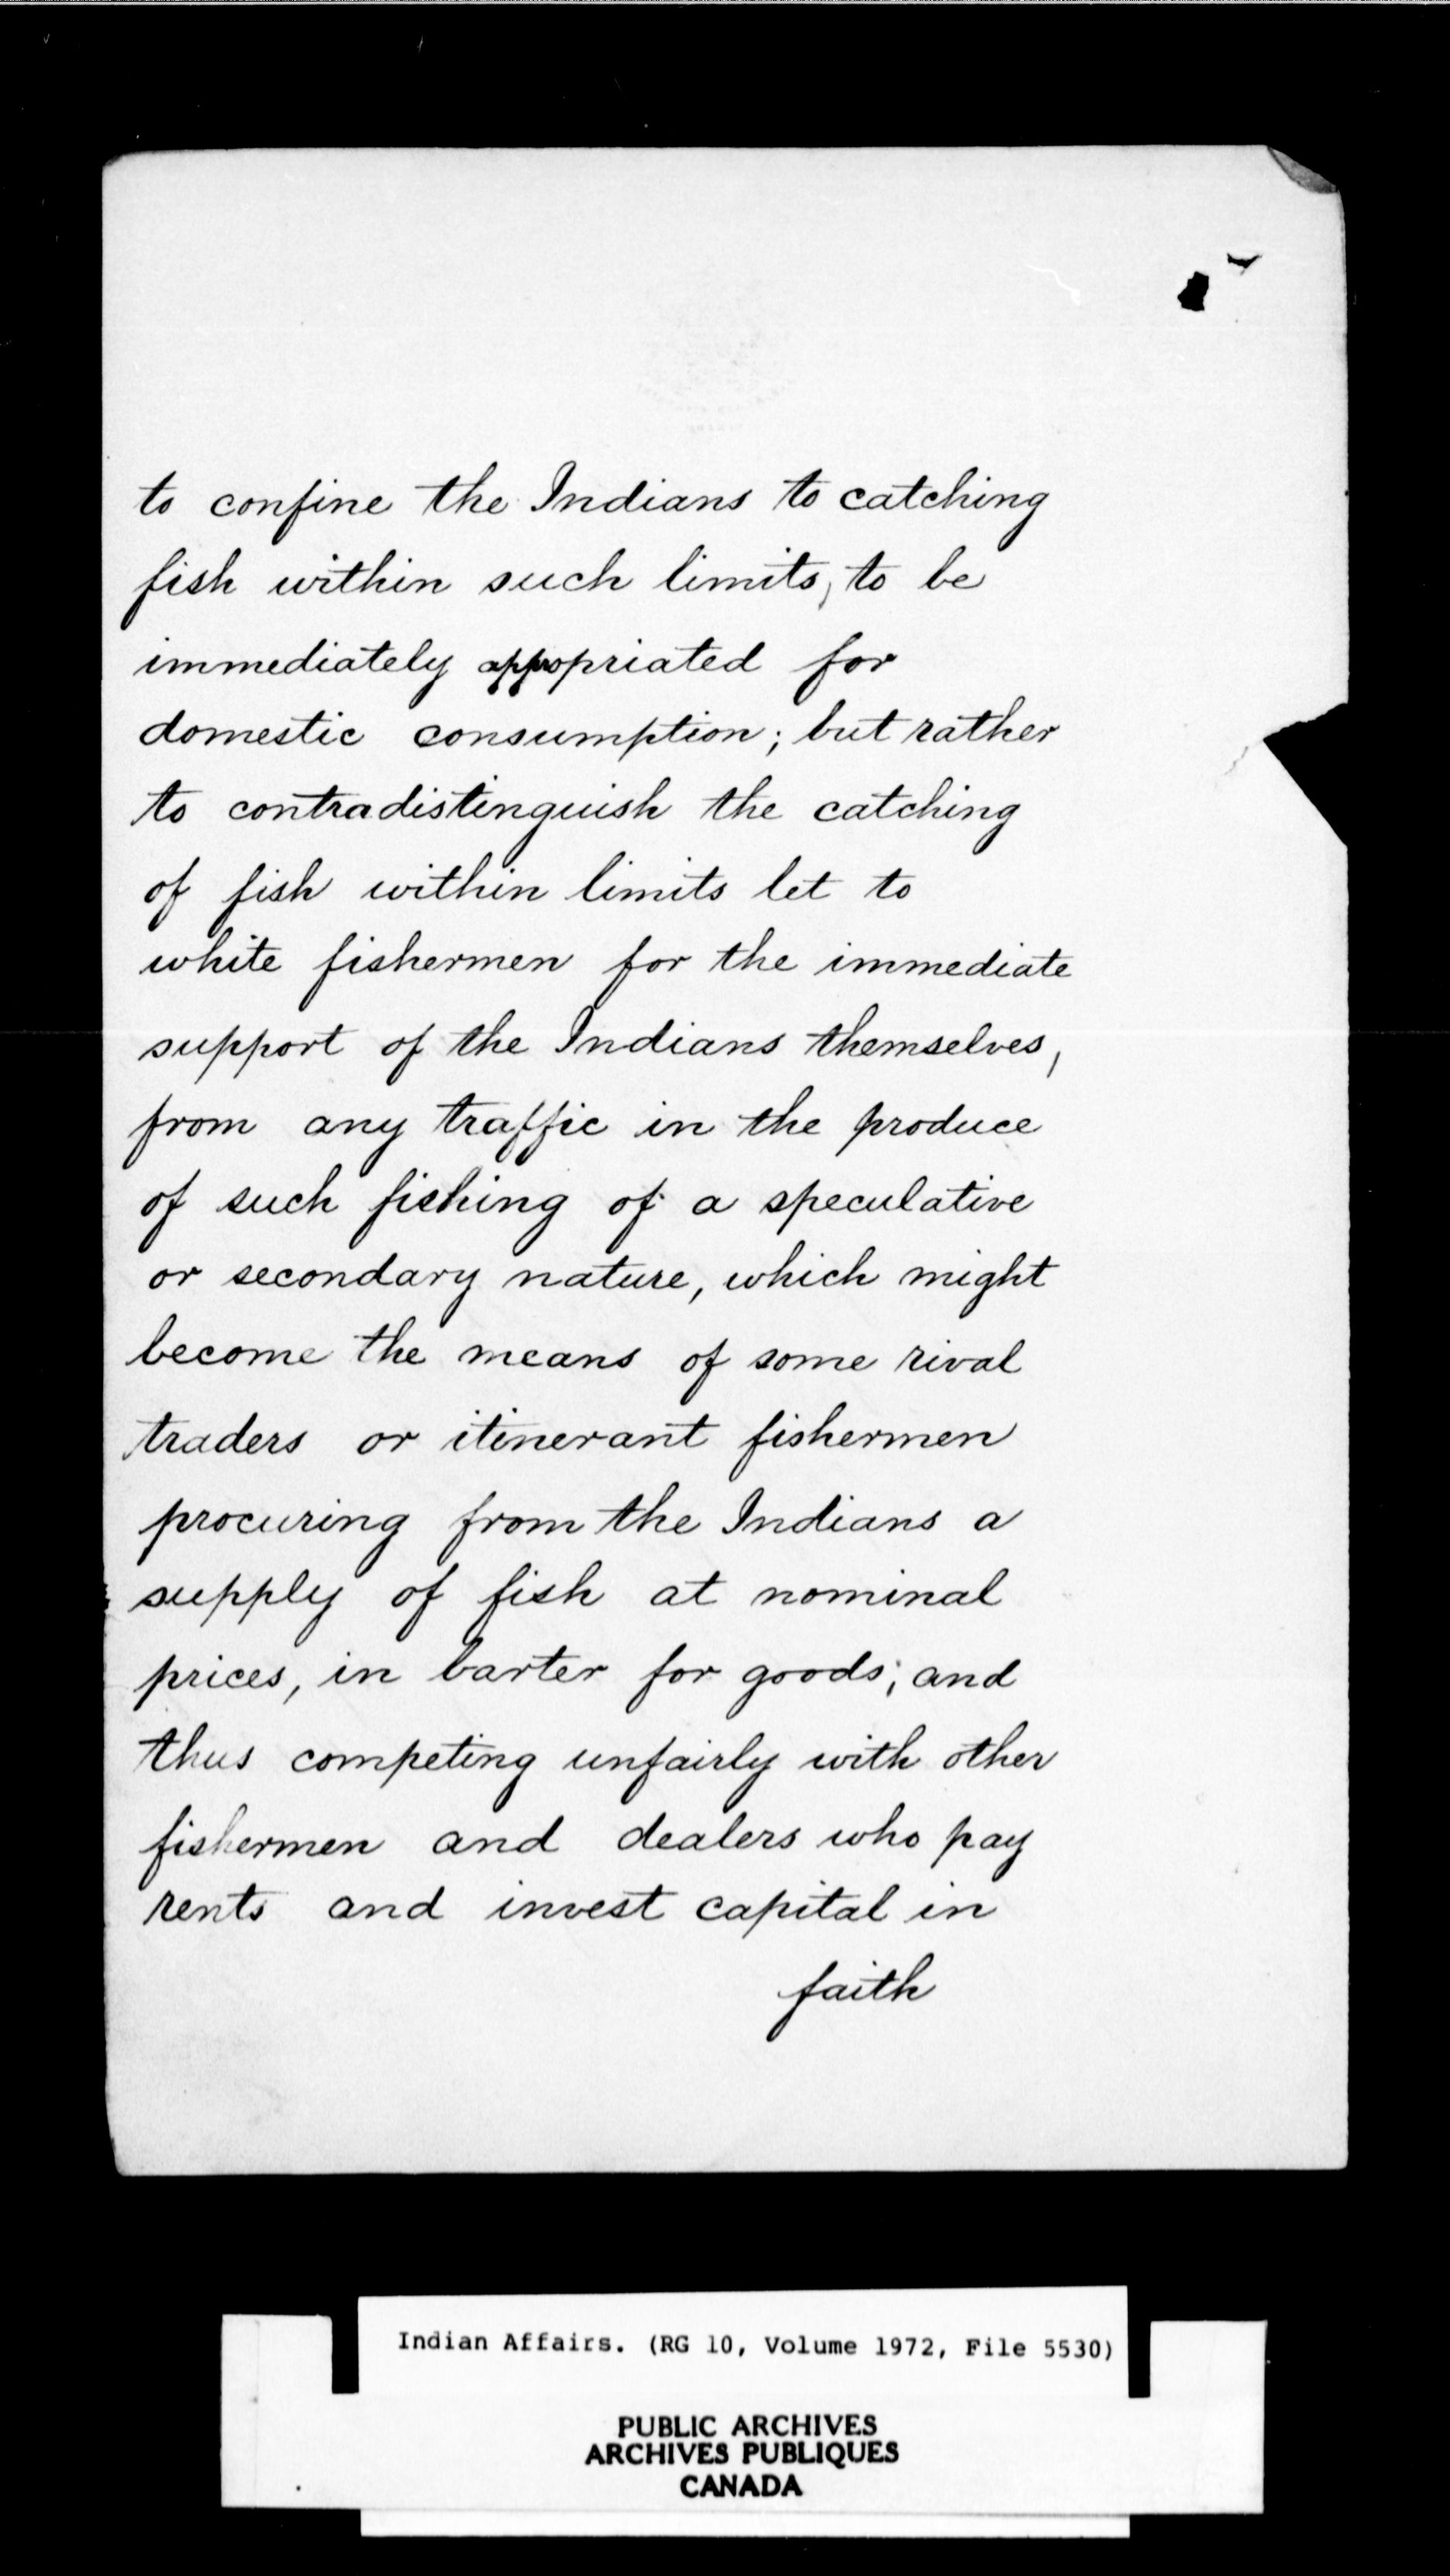 to confine the Indians to catching
fish within such limits, to be
immediately appropriated for
domestic consumption; but rather
to contradistinguish the catching
of fish within limits let to
white fishermen for the immediate
support of the Indians themselves,
from any traffic in the produce
of such fishing of a speculative
or secondary nature, which might
become the means of some rival
traders or itinerant fishermen
procuring from the Indians a
supply of fish at nominal
prices, in barter for goods; and
thus competing unfairly with other
fishermen and dealers who pay
rents and invest capital in
faith
Indian Affairs. (RG 10, Volume 1972, File 5530)
PUBLIC ARCHIVES
ARCHIVES PUBLIQUES
CANADA